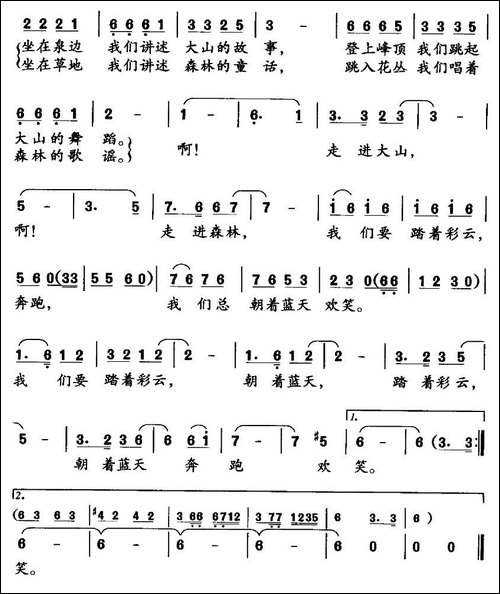 2 2 2 1 | 6 6 6 1 | 3 3 2 5 | 3 - | 6 6 6 5 | 3 3 3 5
坐在泉边 我们讲述 大山的故 事， 登上峰顶 我们跳起
坐在草地 我们讲述 森林的童 话， 跳入花丛 我们唱着
6 6 6 1 | 2 - | 1 - | 6. 1 | 3. 3 2 3 | 3 -
大山的舞 蹈。 啊！ 走 进大山，
森林的歌 谣。
5 - | 3. 5 | 7. 6 6 7 | 7 - | i 6 i 6 | i 6 i 6
啊！ 走 进森林， 我 们要 踏着彩云，
5 6 0 (3 3 | 5 5 6 0) | 7 6 7 6 | 7 6 5 3 | 2 3 0 (6 6 | 1 2 3 0)
奔跑， 我 们总 朝着蓝天 欢笑。
1. 6 1 2 | 3 2 1 2 | 2 - | 1. 6 1 2 | 2 - | 3. 2 3 5
我 们要 踏着彩云， 朝 着蓝天， 踏 着彩云，
5 - | 3. 2 3 6 | 6 6 i | 7 - | 7 #5 | 6 - | 6 (3. 3 :‖
1.
朝 着蓝天 奔 跑 欢 笑。
2.
(6 3 6 3 | #4 2 4 2 | 3 6 6 6 7 1 2 | 3 7 7 1 2 3 5 | 6 3. 3 | 6 )
6 - | 6 - | 6 - | 6 - | 6 0 | 0 0 ‖
笑。